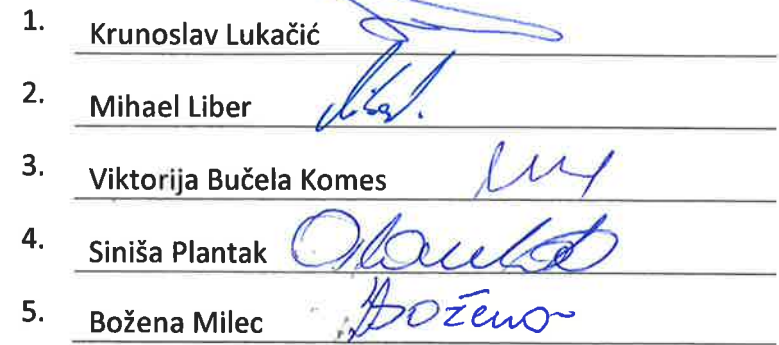 1. Krunoslav Lukačić
2. Mihael Liber
3. Viktorija Bučela Komes
4. Siniša Plantak
5. Božena Milec Božena